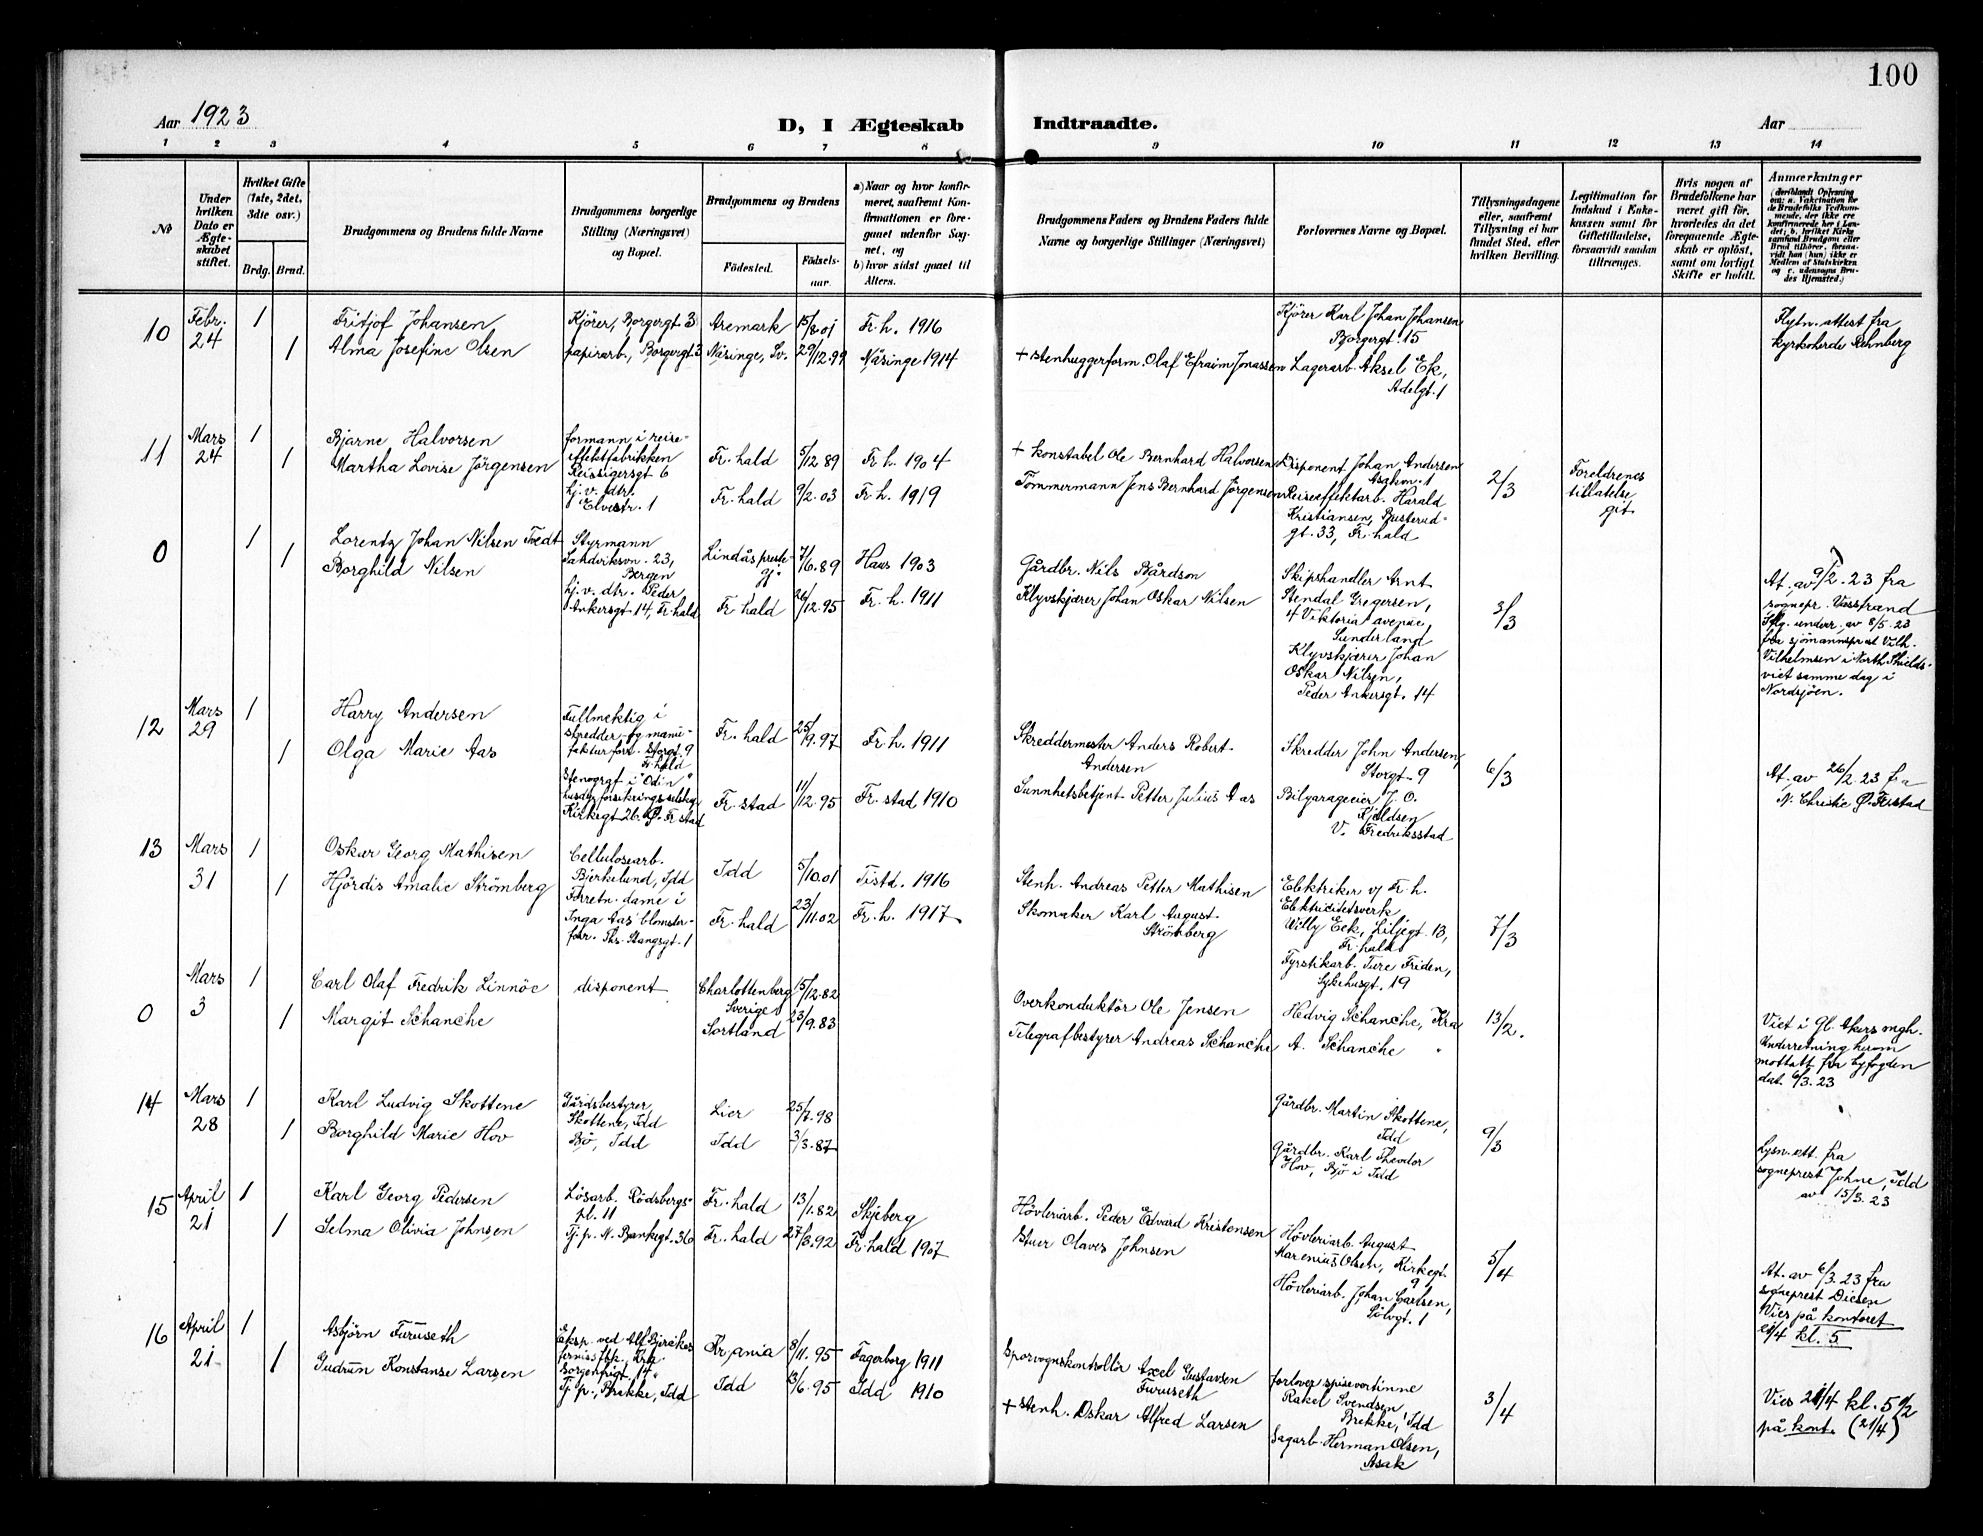 100
Aar 1923
D, I Ægteskab Indtraadte.
Aar
1 2 3 4 5 6 7 8 9 10 11 12 13 14
No
Under hvilken Dato er Ægteskabet stiftet.
Hvilket Gifte (1ste, 2det, 3die osv.)
Brdg. Brud.
Brudgommens og Brudens fulde Navne
Brudgommens borgerlige Stilling (Næringsvei) og Bopæl.
Brudgommens og Brudens
Fødested.
Fødselsaar.
a) Naar og hvor konfirmeret, saafremt Konfirmationen er foregaaet udenfor Sognet, og
b) hvor sidst gaaet til Alters.
Brudgommens Faders og Brudens Faders fulde Navne og borgerlige Stillinger (Næringsvei)
Forlovernes Navne og Bopæl.
Tillysningsdagene eller, saafremt Tillysning ei har fundet Sted, efter hvilken Bevilling.
Legitimation for Indskud i Enkekassen samt for Giftetilladelse, forsaavidt saadan tiltrænges.
Hvis nogen af Brudefolkene har været gift før, hvorledes da det foregaaende Ægteskab er opløst, samt om lovligt Skifte er holdt.
Anmærkninger
(deriblandt Oplysning om: a. Vakcination for de Brudefolks Vedkommende, der ikke ere konfirmerede her i Landet; b. hvilket Kirkesamfund Brudgom eller Brud tilhører, forsaavidt han (hun) ikke er Medlem af Statskirken og c. udensogns Brudes Hjemsted.)
10
Febr. 24
1
1
Fritjof Johansen
Alma Josefine Olsen
Kjörer, Borgergt 3
papirarb., Borgergt. 3
Aremark 15/8.01 Fr.h. 1916
Näsinge, Sv. 29/12.99 Näsinge 1914
+ stenhuggerform. Olaf Efraim Jonassen
Kjörer Karl Johan Johansen
Borgergt. 15
Lagerarb. Aksel Ek,
Adelgt. 1
Lysn. attest fra
kyrkoherde Rehnberg
11
Mars 24
1
1
Bjarne Halvorsen
Martha Lovise Jörgensen
formann i reise-
effektfabrikken
Reissigersgt 6
hj. v. dtr.
Elvestr. 1
Fr. hald 5/12 89 Fr. h. 1904
Fr. hald 9/2. 03 Fr. h. 1919
+ konstabel Ole Bernhard Halvorsen
Tömmermann Jens Bernhard Jörgensen
Disponent Johan Andersen
Askm. 1
Reiseeffektarb. Harald
Kristiansen, Busterud-
gt. 33, Fr. hald
2/3
Foreldrenes
tillatelse
git
0
1
1
Lorentz Johan Nilsen Tvedt
Borghild Nilsen
Styrmann
Sandviksvn. 23,
Bergen
hj. v. dtr. Peder
Ankersgt 14, Fr. hald
Lindås preste-
gj. 7/6.89 Haus 1903
Fr. hald 26/12.95 Fr. h. 1911
Gårdbr. Nils Bårdson
Klyvskjærer Johan Oskar Nilsen
Skipshandler Arnt
Stendal Gregersen,
4 Viktoria avenue,
Sunderland
Klyvskjærer Johan
Oskar Nilsen,
Peder Ankersgt. 14
3/3
At. av 9/2. 23 fra
sognepr. Vasstrand
Iflg. underr. av 8/5. 23
fra sjömannsprest Vilh.
Vilhelmsen i North Shields
viet samme dag i
Nordsjöen.
12
Mars 29
1
1
Harry Andersen
Olga Marie Aas
Fullmektig i
skredder- og manu-
fakturforr. Storgt. 9
Fr. hald
Stenogrgt i "Odin"
husdyrforsikringsselskap
Kirkegt 26. Ø. Fr stad
Fr. hald 25/9.97 Fr. h. 1911
Fr. stad 11/12.95 Fr. stad 1910
Skreddermester Anders Robert
Andersen
Sunnhetsbetjent Petter Julius Aas
Skredder John Andersen,
Storgt. 9
Bilgarageeier J. O.
Kjoldsen
V. Fredriksstad
6/3
At. av 26/2. 23 fra
N. Christie Ø. Fr.stad
13
Mars 31
1
1
Oskar Georg Mathisen
Hjördis Amalie Strömberg
Cellulosearb.
Bjerkelund, Idd
Forretn. dame i
Inga Aas' blomster-
forr. Ths. Stangsgt. 1
Idd 5/10.01 Tistd. 1916
Fr. hald 23/11.02 Fr. h. 1917
Stenh. Andreas Petter Mathisen
Skomaker Karl August
Strömberg
Elektriker v/ Fr. h.
Elektricitetsverk
Willy Eek, Liljegt. 13,
Fr. hald
Fyrstikarb. Ture Friden,
Sykehusgt. 19
7/3
0
Mars 3
1
1
Carl Olaf Fredrik Linnöe
Margit Schanche
disponent
Charlottenberg
Sverige 15/12.82
Sortland 23/9.83
Overkonduktör Ole Jensen
Telegrafbestyrer Andreas Schanche
Hedvig Schanche, Kra
A. Schanche "
13/2.
Viet i Gl. Akers mgh.
Underretning herom
mottatt fra byfogden
dat. 6/3. 23
14
Mars 28
1
1
Karl Ludvig Skottene
Borghild Marie Hov
Gårdsbestyrer
Skottene, Idd
Bö, Idd
Lier 25/7.98
Idd 3/3.87
Gårdbr. Martin Skottene,
Idd
Gårdbr. Karl Theodor
Hov, Bö i Idd
9/3
Lysn. att. fra
sogneprest Johne, Idd
av 15/3. 23
15
April 21
1
1
Karl Georg Pedersen
Selma Olivia Johnsen
Lösarb. Rödsbergs-
pl. 11
Tj. p. N. Bankegt. 36
Fr. hald 13/1.82 Skjeberg
Fr. hald 27/8.92 Fr. hald 1907
Hövleriarb. Peder Edvard Kristensen
Stuer Olaves Johnsen
Hövleriarb. August
Marenius Olsen, Kirkegt.
9
Hövleriarb. Johan Carlsen,
Sölvgt. 1
5/4
At. av 6/3. 23 fra
sogneprest Diesen
Vies på kontoret
21/4 kl. 5
16
April 21
1
1
Asbjörn Furuseth
Gudrun Konstanse Larsen
Eksp. ved Alf Bjerckes
fernissfbk., Kra
Borgenfrigt. 14
Tj. p., Brekke, Idd
Kr.ania 8/11. 95 Fagerborg 1911
Idd 13/6. 95 Idd 1910
Sporvognskontrollör Axel Gustavsen
Furuseth
+ Stenh. Oskar Alfred Larsen
forlover spisevertinne
Rakel Svendsen
Brekke, Idd
Sagarb. Herman Olsen,
Asak
3/4
Vies 21/4 kl. 5 1/2
på kont. (21/4)